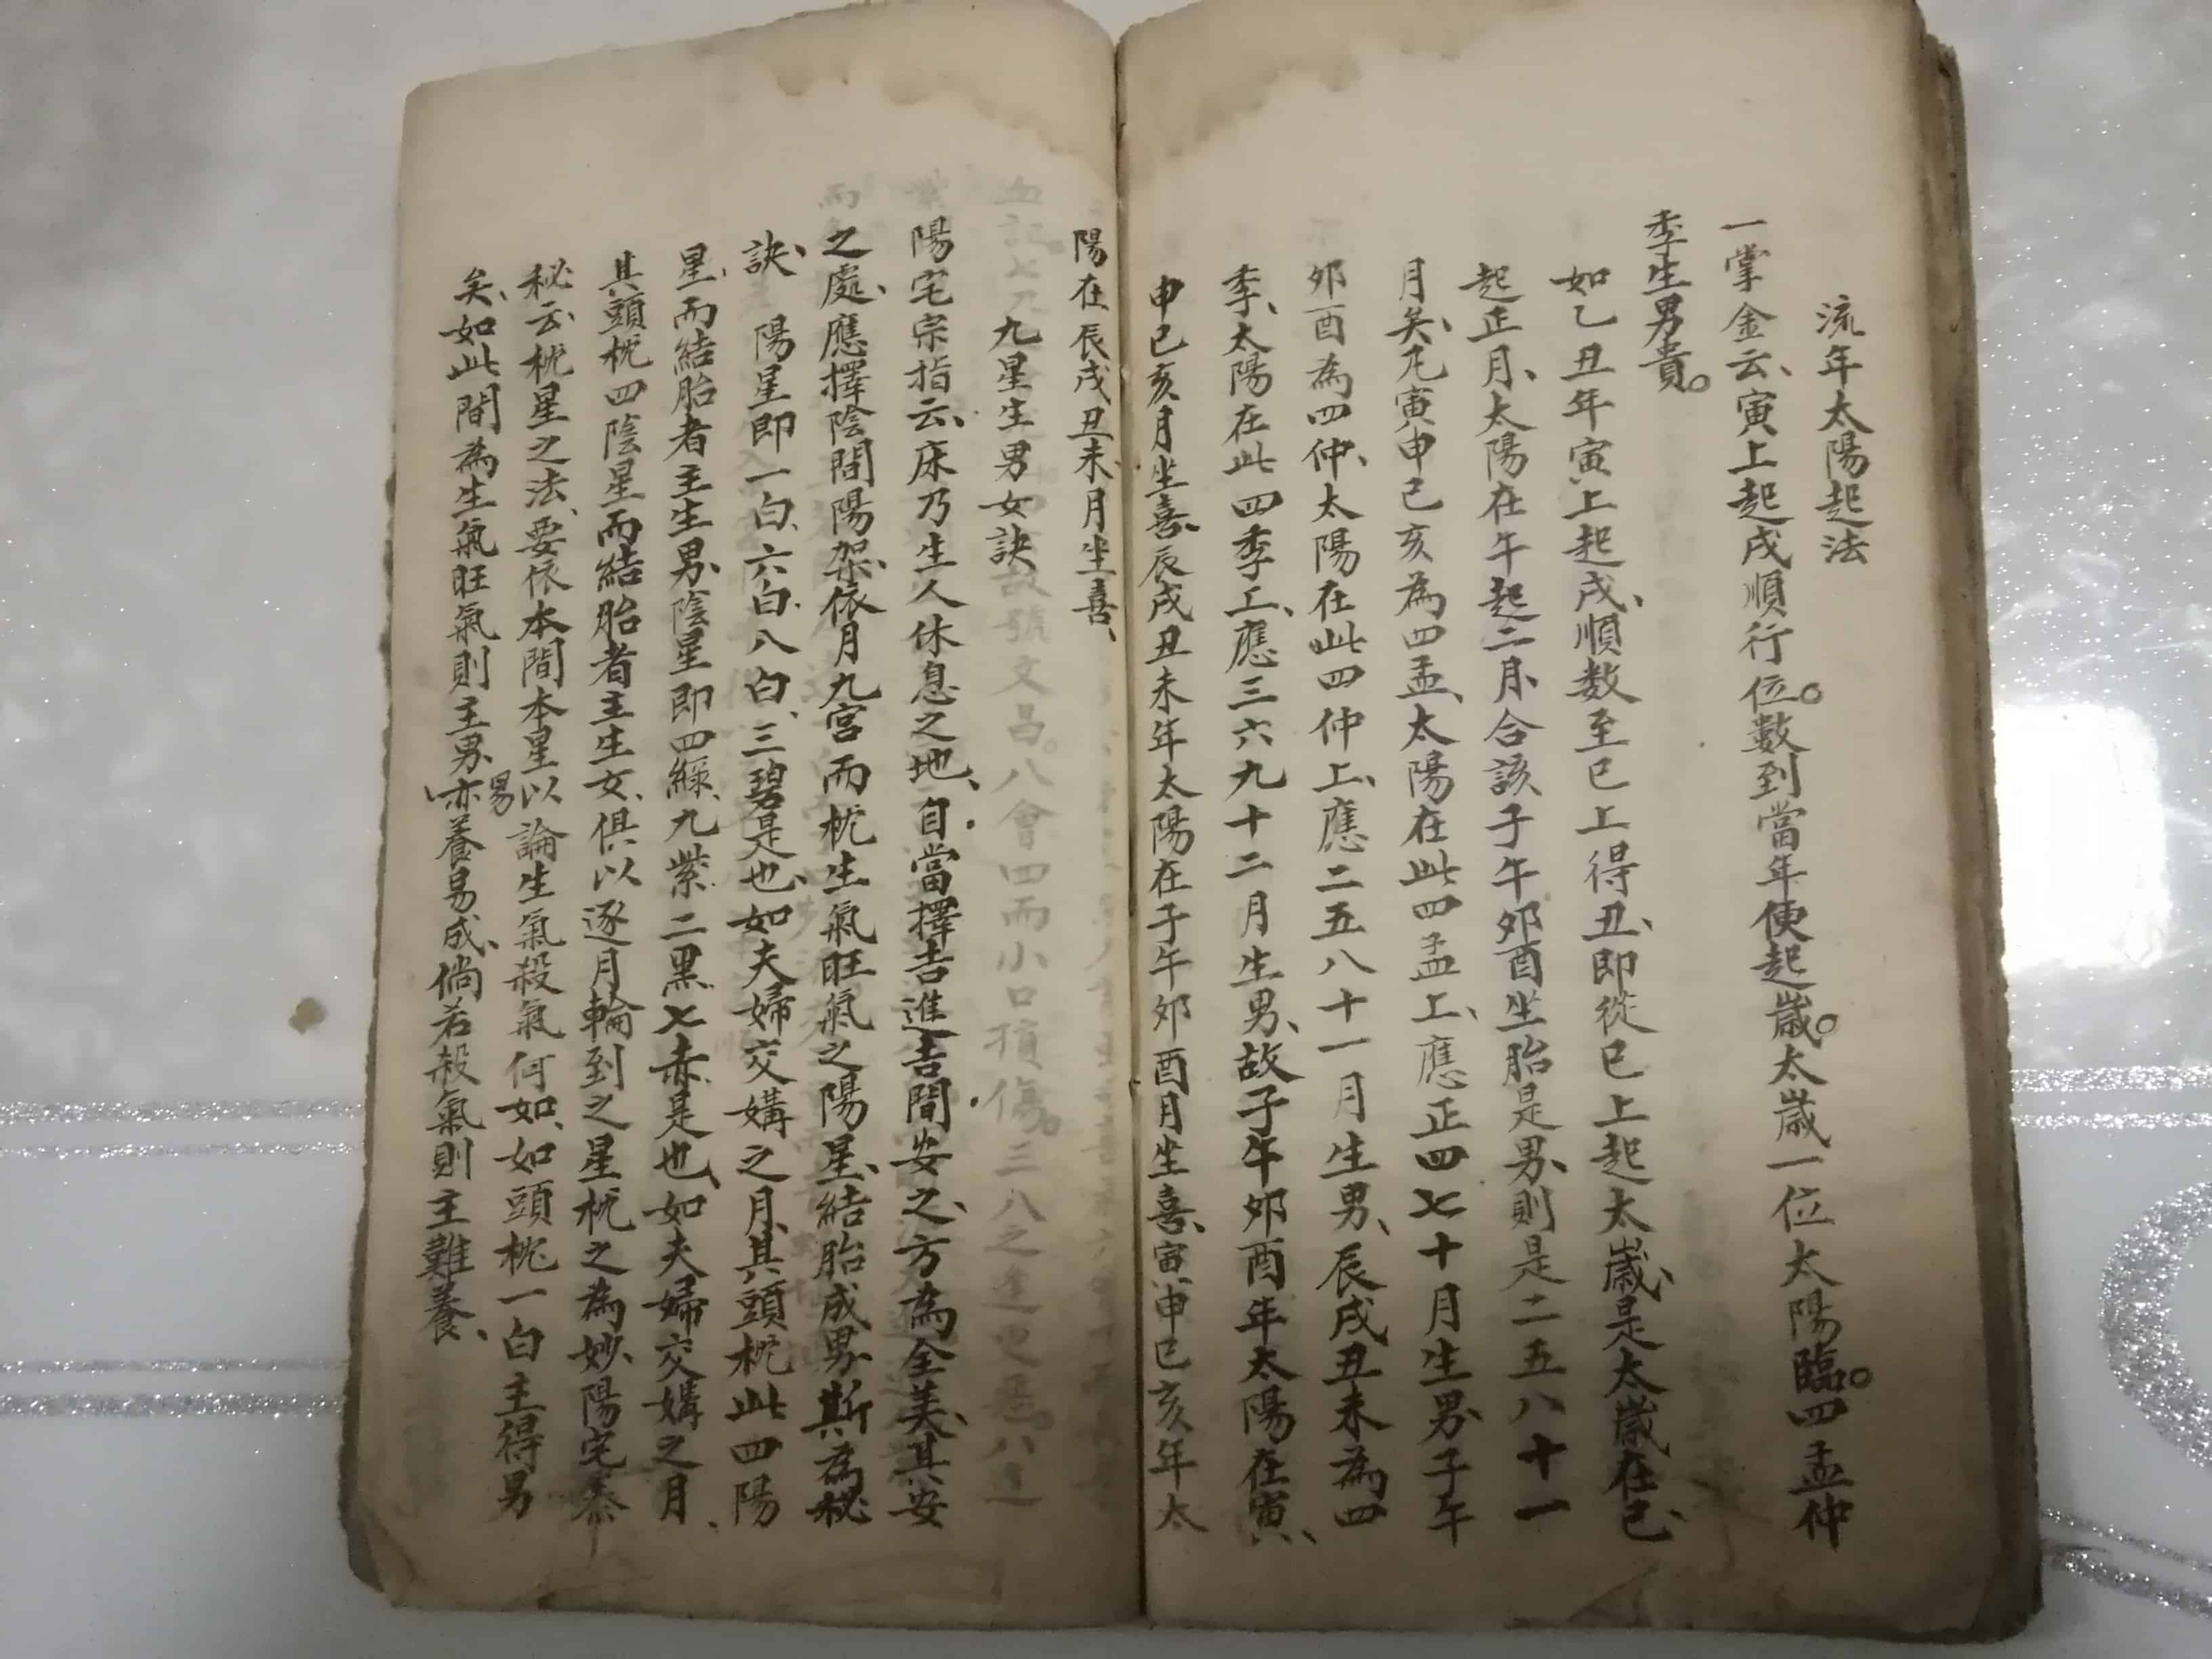 流年太陽起法
一掌金云、寅上起戌順行位。數到當年便起歲。太歲一位太陽臨。四孟仲
季生男貴。
如乙丑年寅上起戌、順数至巳上得丑、即從巳上起太歲、是太歲在巳、
起正月、太陽在午起二月、合該子午卯酉坐胎是男、則是二五八十一
月矣、凡寅申巳亥為四孟、太陽在此四孟上、應正四七十月生男、子午
卯酉為四仲、太陽在此四仲上、應二五八十一月生男、辰戌丑未為四
季、太陽在此四季上、應三六九十二月生男、故子午卯酉年太陽在寅、
申巳亥月坐喜、辰戌丑未年太陽在子午卯酉月坐喜、寅申巳亥年太
陽在辰戌丑未月坐喜、
九星生男女訣
陽宅宗指云、床乃生人休息之地、自當擇吉進吉間安之、方為全美、其安
之處、應擇陰間陽架、依月九宮而枕生氣旺氣之陽星、結胎成男、斯為秘
訣、陽星即一白、六白、八白、三碧是也、如夫婦交媾之月、其頭枕此四陽
星、而結胎者主生男、陰星即四綠、九紫、二黑、七赤是也、如夫婦交媾之月、
其頭枕四陰星而結胎者主生女、俱以逐月輪到之星枕之為妙、陽宅
秘云、枕星之法、要依本間本星以論生氣殺氣何如、如頭枕一白主得男
矣、如此間為生氣旺氣則主男、亦易養易成、倘若殺氣則主難養、